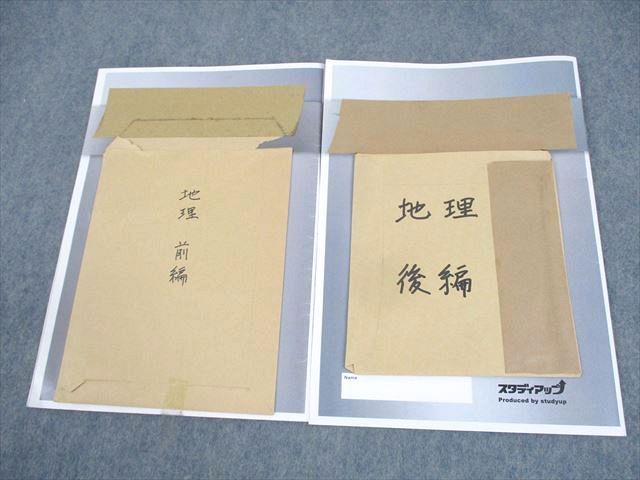 地理
前編
地理
後編
Name
スタディアップ
Produced by studyup